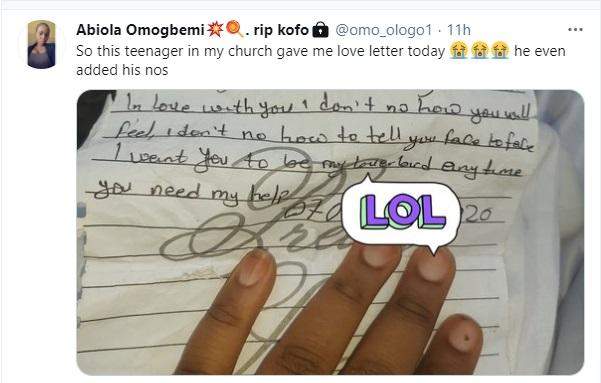 Abiola Omogbemi💥🍭. rip kofo🔒 @omo_ologo1 · 11h
So this teenager in my church gave me love letter today 😭😭😭 he even
added his nos
In love with you I don't no how you will
feel, i don't no how to tell you face to face
I want you to be my loverbird any time
you need my help
070
LOL
20